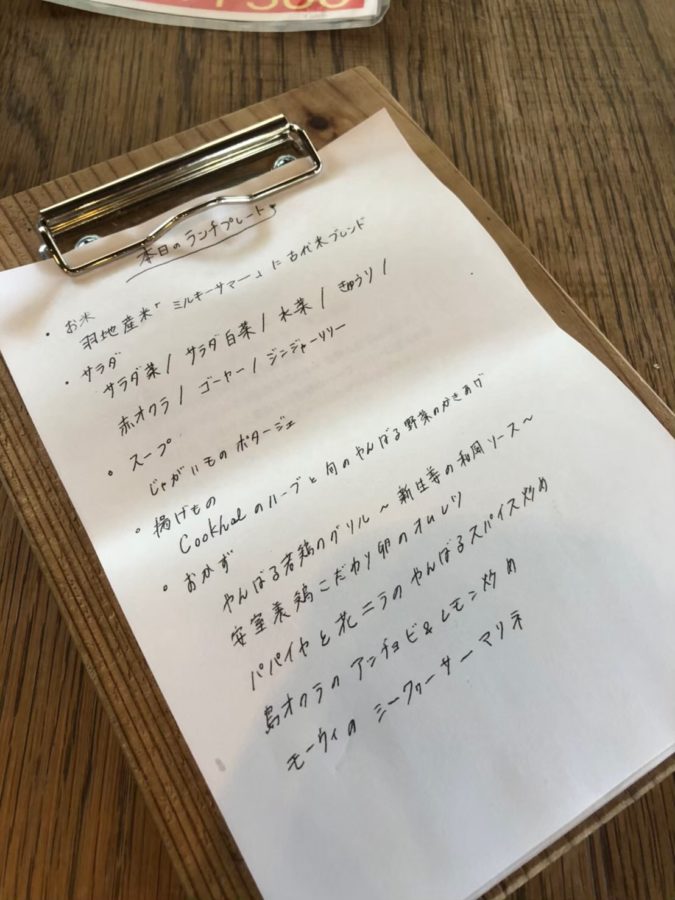 本日のランチプレート
・お米
羽地産米「ミルキーサマー」に古代米ブレンド
・サラダ
サラダ菜/サラダ白菜/水菜/きゅうり/
赤オクラ/ゴーヤー/ジンジャーリリー
・スープ
じゃがいものポタージュ
・揚げもの
Cookhalのハーブと旬のやんばる野菜のかきあげ
・おかず
やんばる若鶏のグリル～新生姜の和風ソース～
安室養鶏こだわり卵のオムレツ
パパイヤと花ニラのやんばるスパイス炒め
島オクラのアンチョビ&レモン炒め
モーウィのシークワーサーマリネ